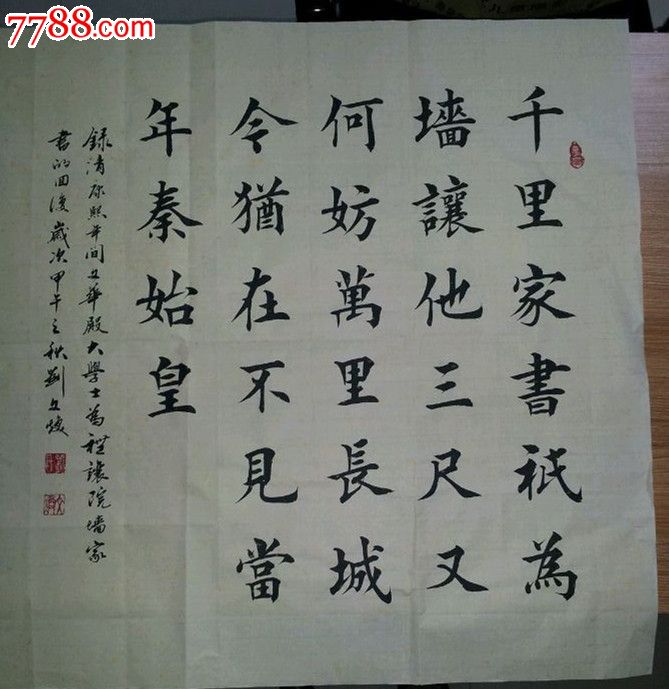 7788.com
千里家書祗為
墻讓他三尺又
何妨萬里長城
令猶在不見當
年秦始皇
錄清康熙年間文華殿大學士為禮讓院墻家
書的回復歲次甲午之秋劉文